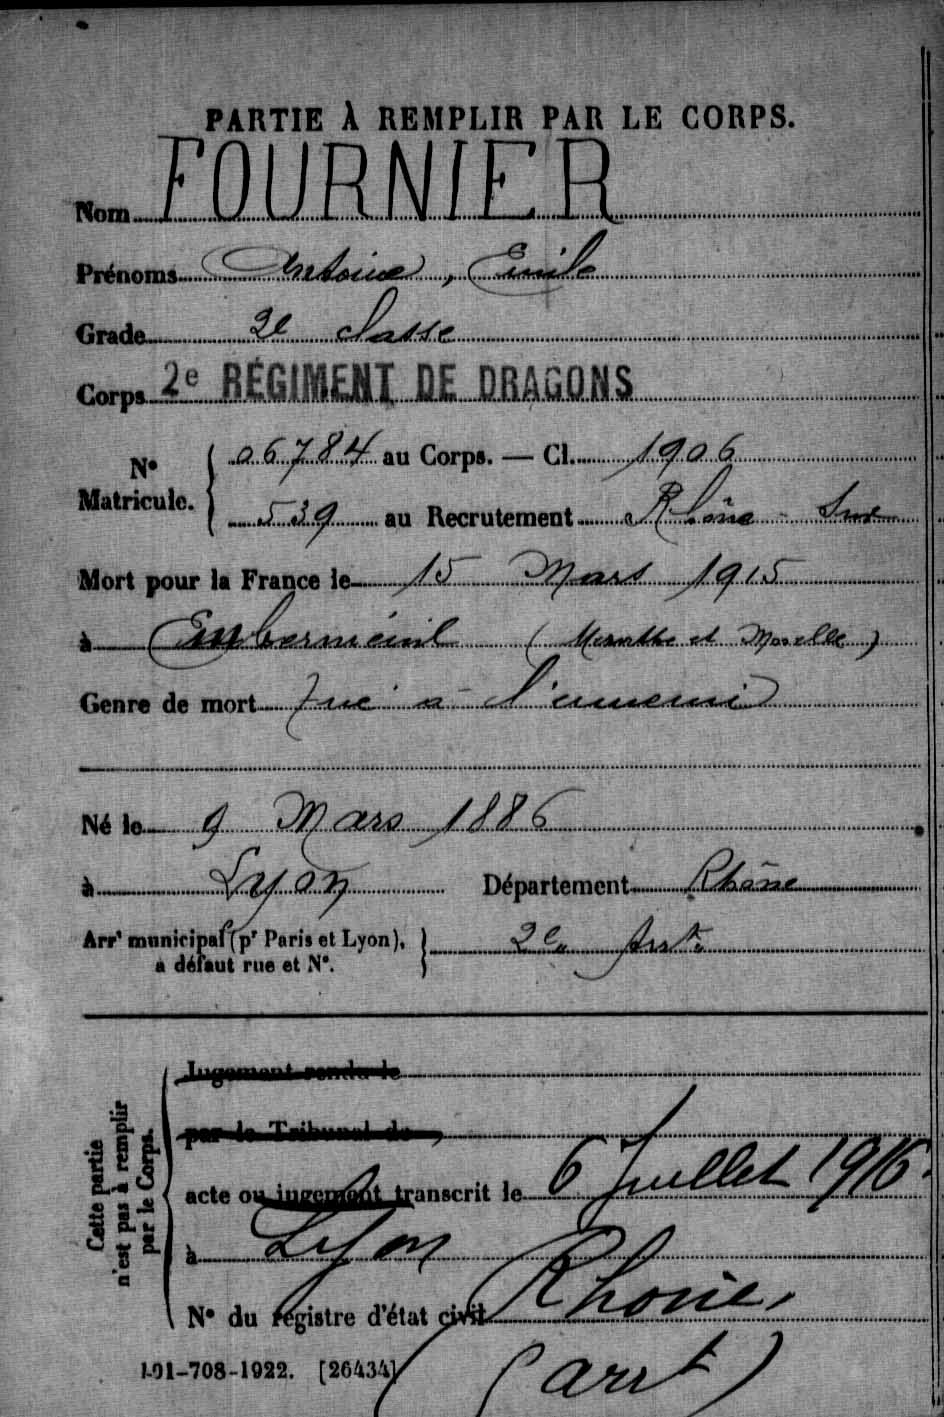 PARTIE À REMPLIR PAR LE CORPS.
Nom FOURNIER
Prénoms Antoine, Emile
Grade 2e classe
Corps 2e RÉGIMENT DE DRAGONS
N° Matricule. 06784 au Corps. — Cl. 1906
539 au Recrutement Rhône - Sud
Mort pour la France le 15 Mars 1915
à Emberménil (Meurthe et Moselle)
Genre de mort Tué à l'ennemi
Né le 9 Mars 1886
à Lyon Département Rhône
Arrt municipal (pr Paris et Lyon), à défaut rue et N°. 2e Arrt.
Cette partie n'est pas à remplir par le Corps.
Jugement rendu le
par le Tribunal de
acte ou jugement transcrit le 6 Juillet 1916.
à Lyon
N° du registre d'état civil Rhône,
( arrt )
101-708-1922. [26434]